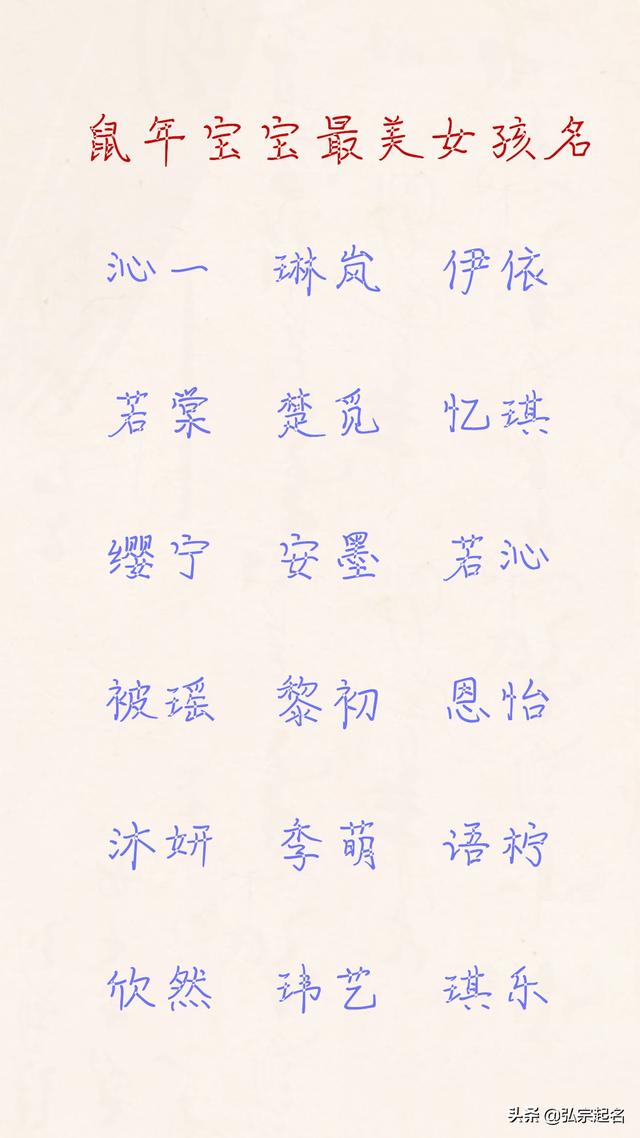 鼠年宝宝最美女孩名
沁一 琳岚 伊依
若棠 楚觅 忆琪
缨宁 安墨 若沁
被瑶 黎初 恩怡
沐妍 李萌 语柠
欣然 玮艺 琪乐
头条 @弘宗起名